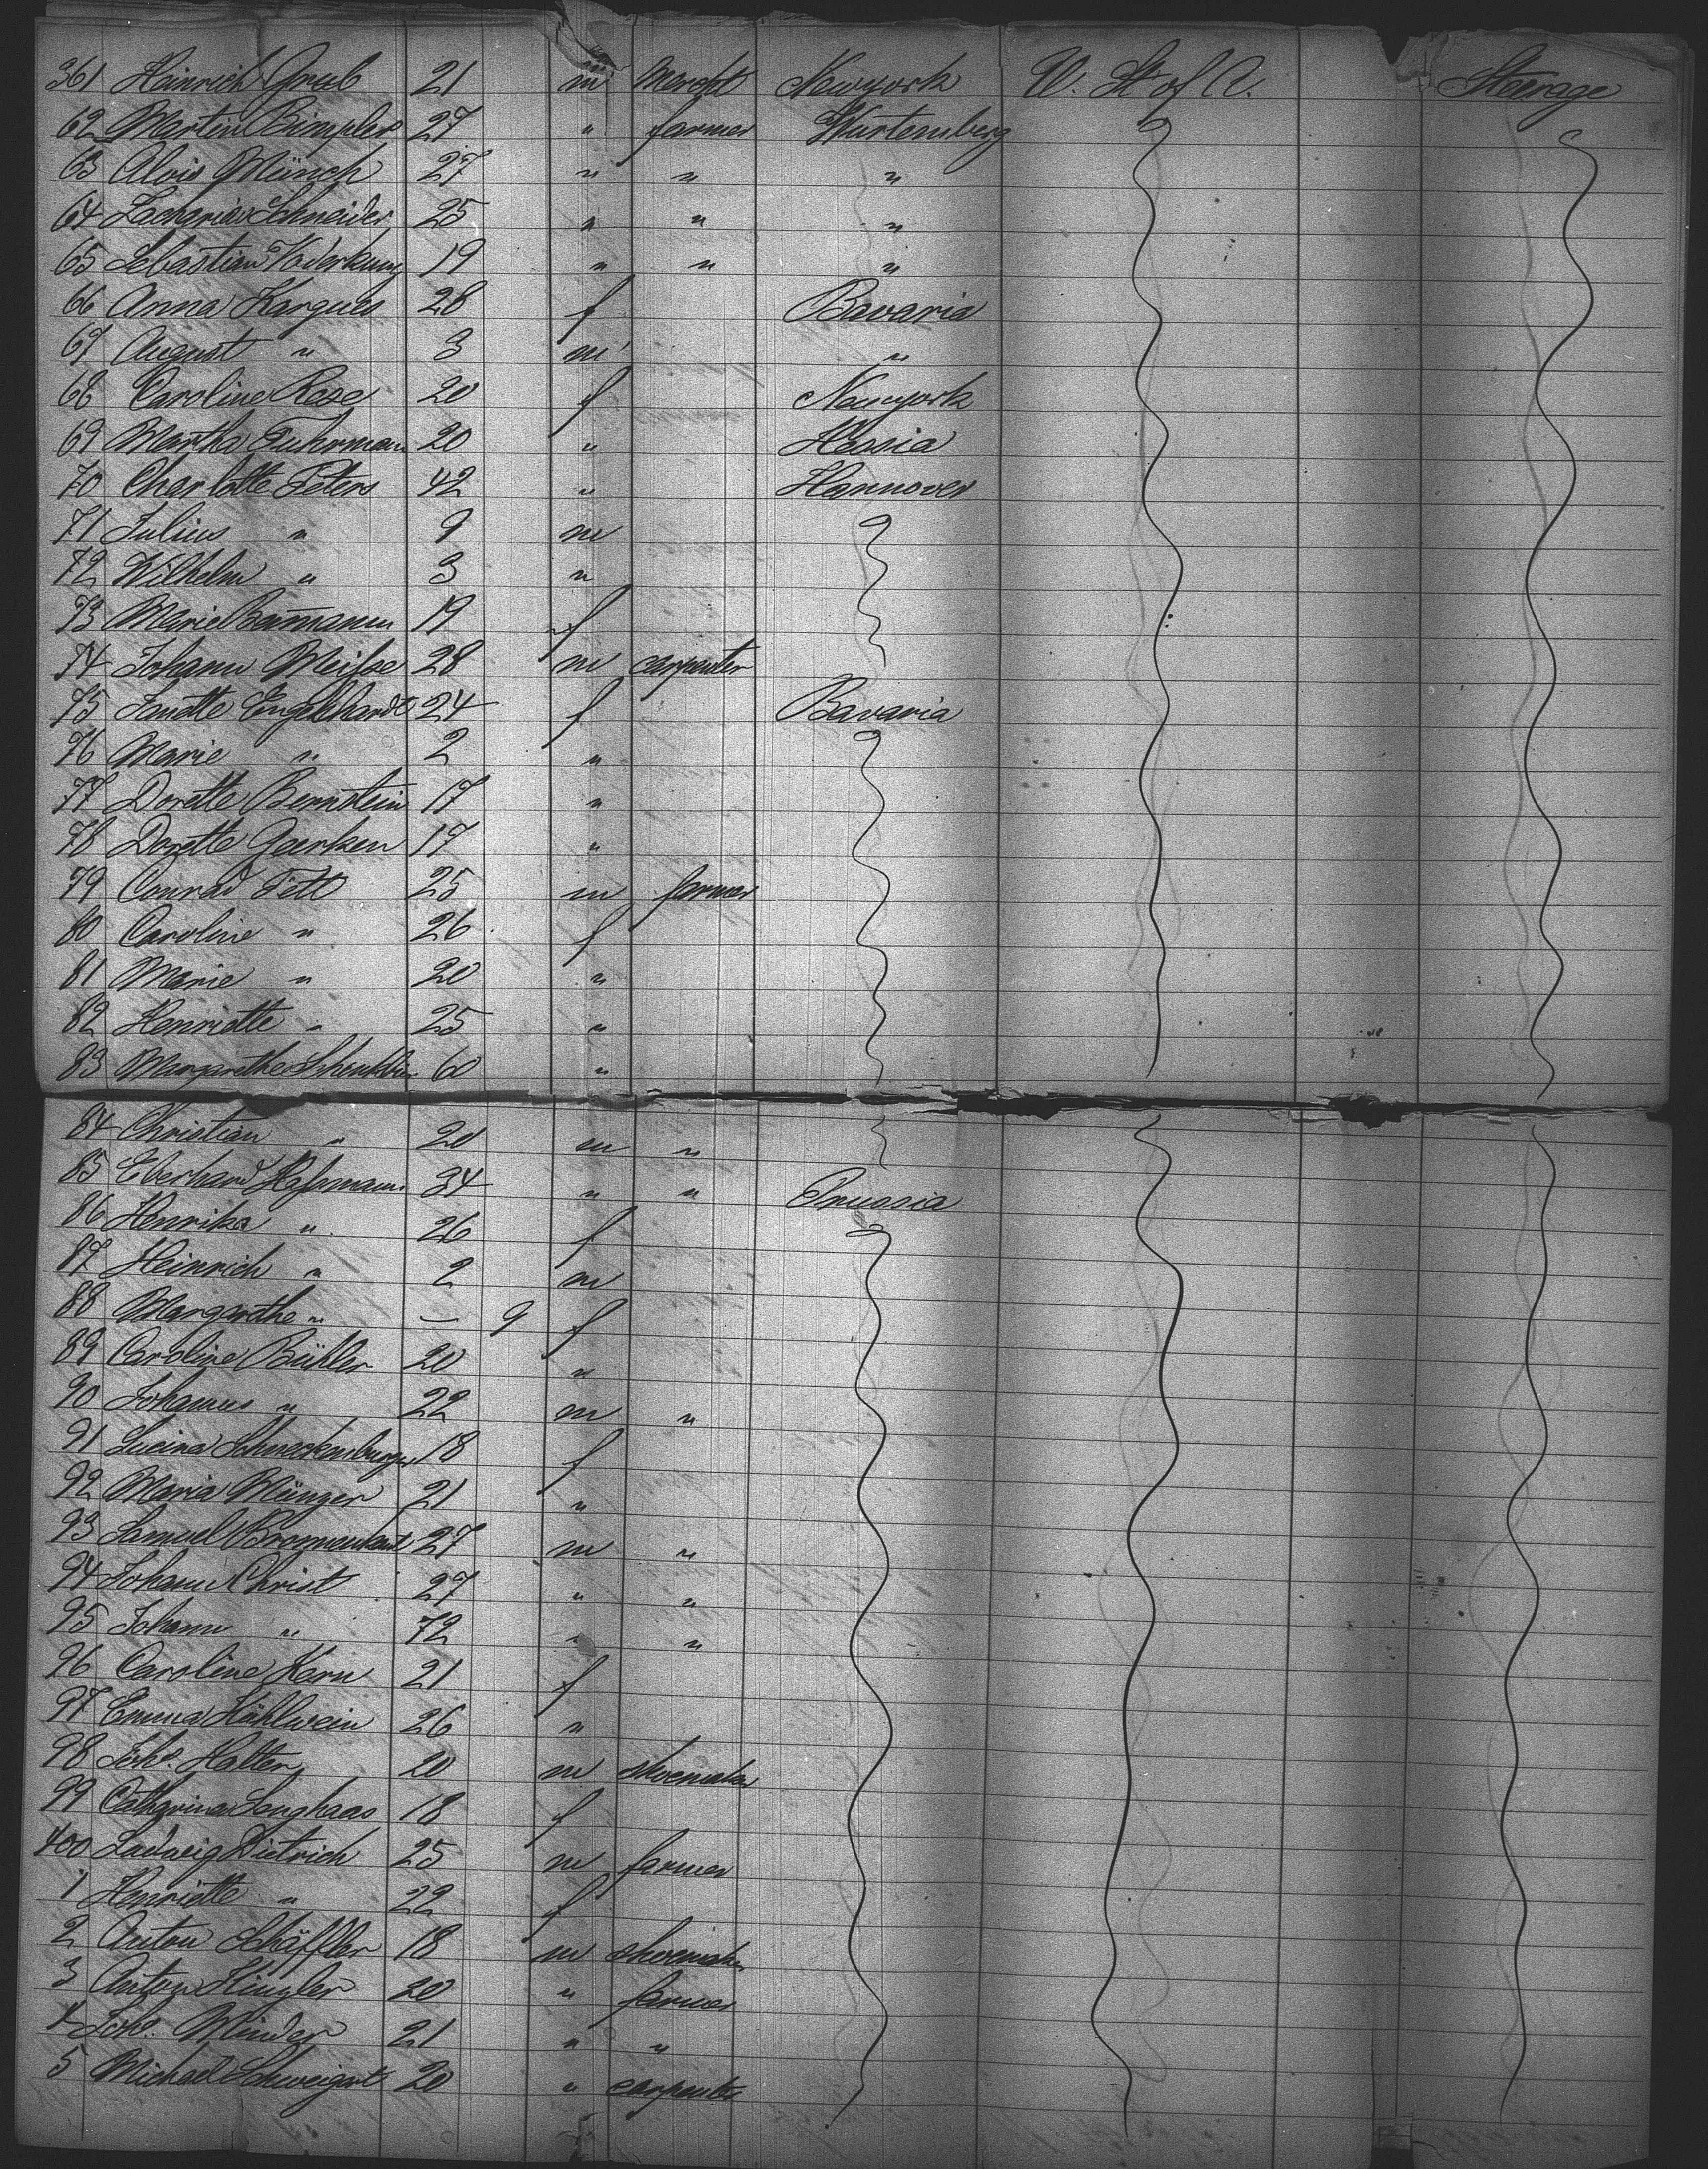 361 Heinrich Grub 21 m Mercht Newyork U. St of A. Steerage
62 Martin Bimpler 27 " farmer Würtemberg
63 Alois Münch 27 " " "
64 Zacharias Schneider 25 " " "
65 Sebastian 19 " " "
66 Anna Karques 28 f Bavaria
67 August " 3 m "
68 Caroline Rose 20 f Newyork
69 Martha Fuhrmann 20 " Hessia
70 Charlotte Peters 42 " Hannover
71 Julius " 9 m
72 Wilhelm " 3 "
73 Marie Baumann 19 f
74 Johann Meisse 28 m carpenter
75 Janette Engelhardt 24 f Bavaria
76 Marie " 2 "
77 Dorette Bernstein 17 "
78 Dorette Gerken 17 "
79 Conrad Fett 25 m farmer
80 Caroline " 26 f
81 Marie " 20 "
82 Henriette " 25 "
83 Margarethe 60 "
84 Christian " 20 m "
85 Eberhard Hassmann 34 " " Prussia
86 Henrika " 26 f
87 Heinrich " 2 m
88 Margarethe " — 9 f
89 Caroline Bühler 20 "
90 Johannes " 22 m "
91 Lucina Schneckenburger 18 f
92 Maria Münger 21 "
93 Samuel 27 m "
94 Johann Christ 27 " "
95 Johann " 72 " "
96 Caroline Kern 21 f
97 Emma Höhlwein 26 "
98 Johs. Halter 20 m shoemaker
99 Catharina Langhaas 18 f
400 Ludwig Dietrich 25 m farmer
1 Henriette " 22 f
2 Anton Schäffler 18 m shoemaker
3 Anton Hingler 20 " farmer
4 Johs. Minder 21 " "
5 Michael Schweigart 20 " carpenter